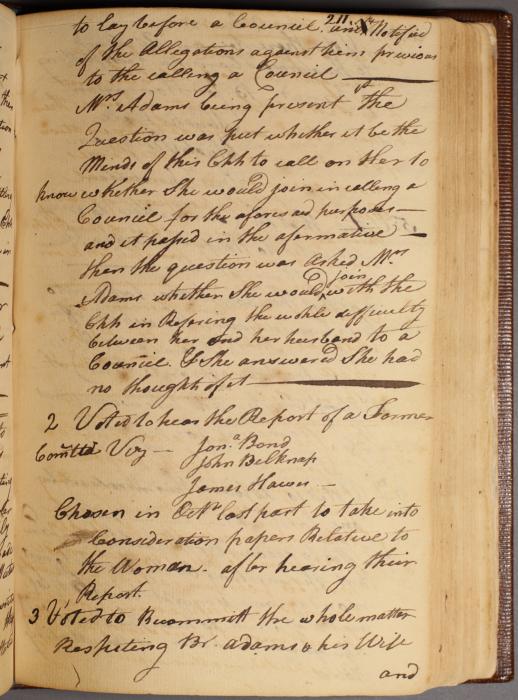 211.
to lay before a Council and Notified
of the Allegations against them previous
to the calling a Council
Mrs. Adams being present 1st the
Question was put whether it be the
Minds of this Chh to call on Her to
know whether She would join in calling a
Council for the aforesaid purposes
and it passed in the afermative
then the question was asked Mrs
Adams whether She would join with the
Chh in Refering the whole difficulty
between her and her husband to a
Council. & She answered She had
no thoughts of it
2 Voted to hear the Report of a Former
Comtte Viz — Jona Bond
John Belknap
James Hawes —
Chosen in Octr last past to take into
Consideration papers Relative to
the Woman. after hearing their
Report.
3 Voted to Recommitt the whole matter
Respeting Br. Adams & his Wife
and